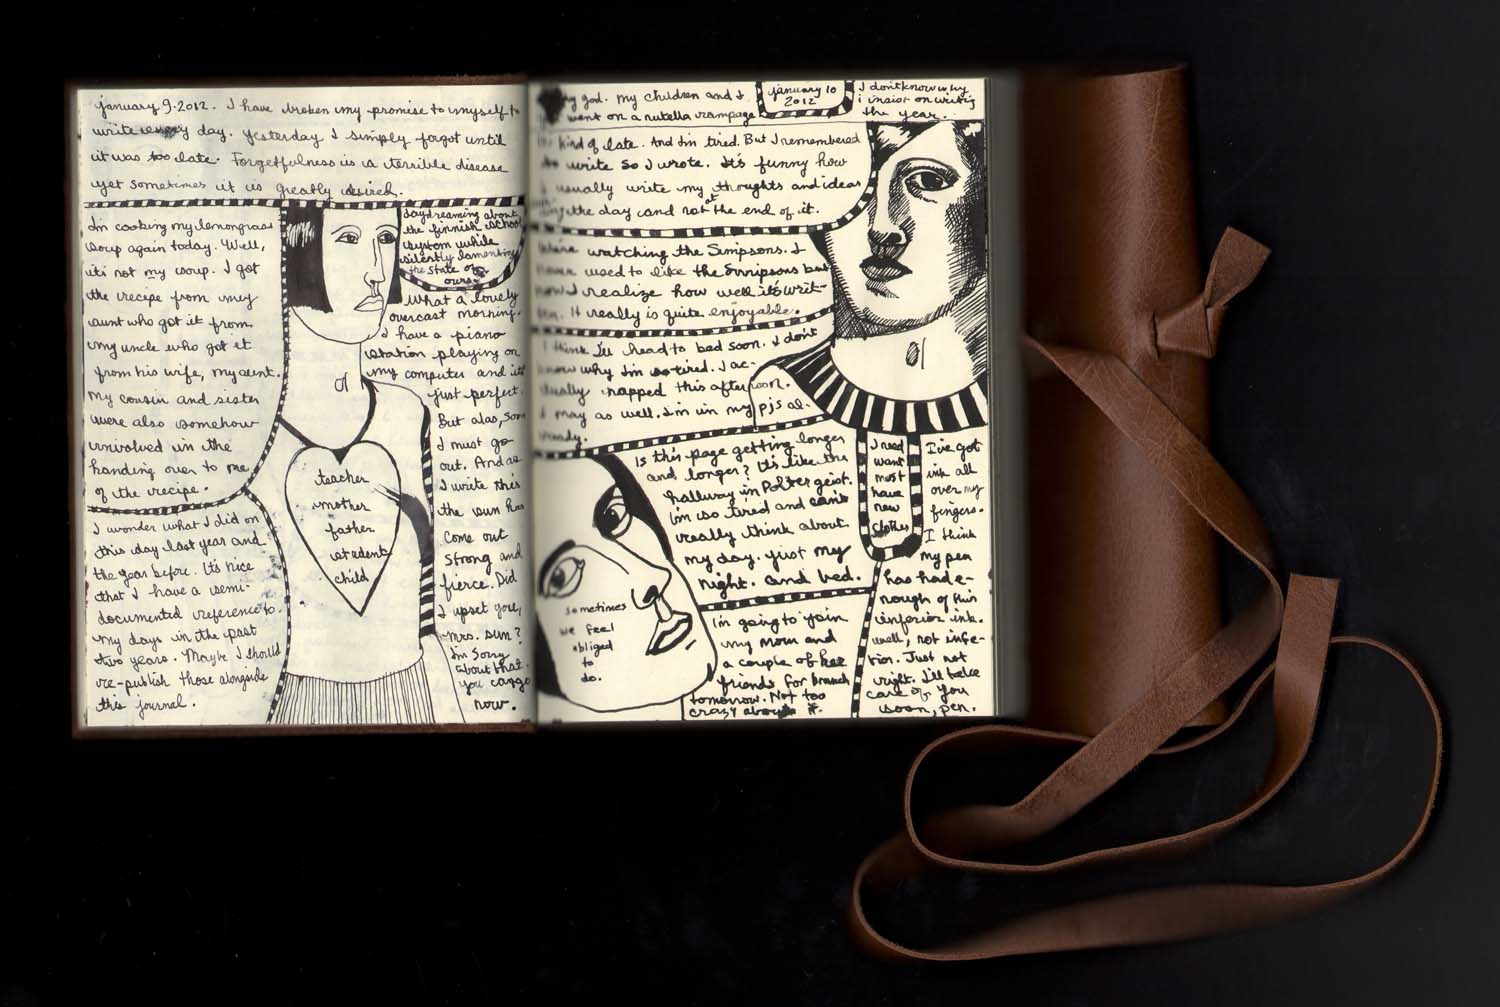 january 9. 2012. I have broken my promise to myself to
write every day. yesterday I simply forgot until
it was too late. Forgetfulness is a terrible disease
yet sometimes it is greatly desired.
I'm cooking my lemongrass
soup again today. Well,
it's not my soup. I got
the recipe from my
aunt who got it from
my uncle who got it
from his wife, my aunt.
my cousin and sister
were also somehow
involved in the
handing over to me
of the recipe.
I wonder what I did on
this day last year and
the year before. It's nice
that I have a semi-
documented reference to
my days in the past
two years. Maybe I should
re-publish those alongside
this journal.
teacher
mother
father
student
child
daydreaming about
the finnish school
system while
silently lamenting
the state of
ours.
What a lovely
overcast morning.
I have a piano
station playing on
my computer and it's
just perfect.
But alas, soon
I must go
out. And as
I write this
the sun has
come out
strong and
fierce. Did
I upset you,
mrs. sun?
I'm sorry
about that.
you can go
now.
my god. my children and I
went on a nutella rampage.
january 10
2012
I don't know why
i insist on writing
the year.
kind of late. And I'm tired. But I remembered
to write so I wrote. It's funny how
I usually write my thoughts and ideas
the day and not at the end of it.
watching the Simpsons. I
never used to like the Simpsons but
now I realize how well it's writ-
ten. It really is quite enjoyable.
I think I'll head to bed soon. I don't
know why I'm so tired. I ac-
tually napped this afternoon.
I may as well. I'm in my pjs al-
ready.
Is this page getting longer
and longer? It's like the
hallway in Poltergeist.
I'm so tired and can't
really think about
my day. just my
night. and bed.
sometimes
we feel
obliged
to
do.
I'm going to join
my mom and
a couple of her
friends for brunch
tomorrow. Not too
crazy about it.
I need
want
must
have
new
clothes
I've got
ink all
over my
fingers.
I think
my pen
has had e-
nough of this
inferior ink.
well, not infe-
rior. Just not
right. I'll take
care of you
soon, pen.